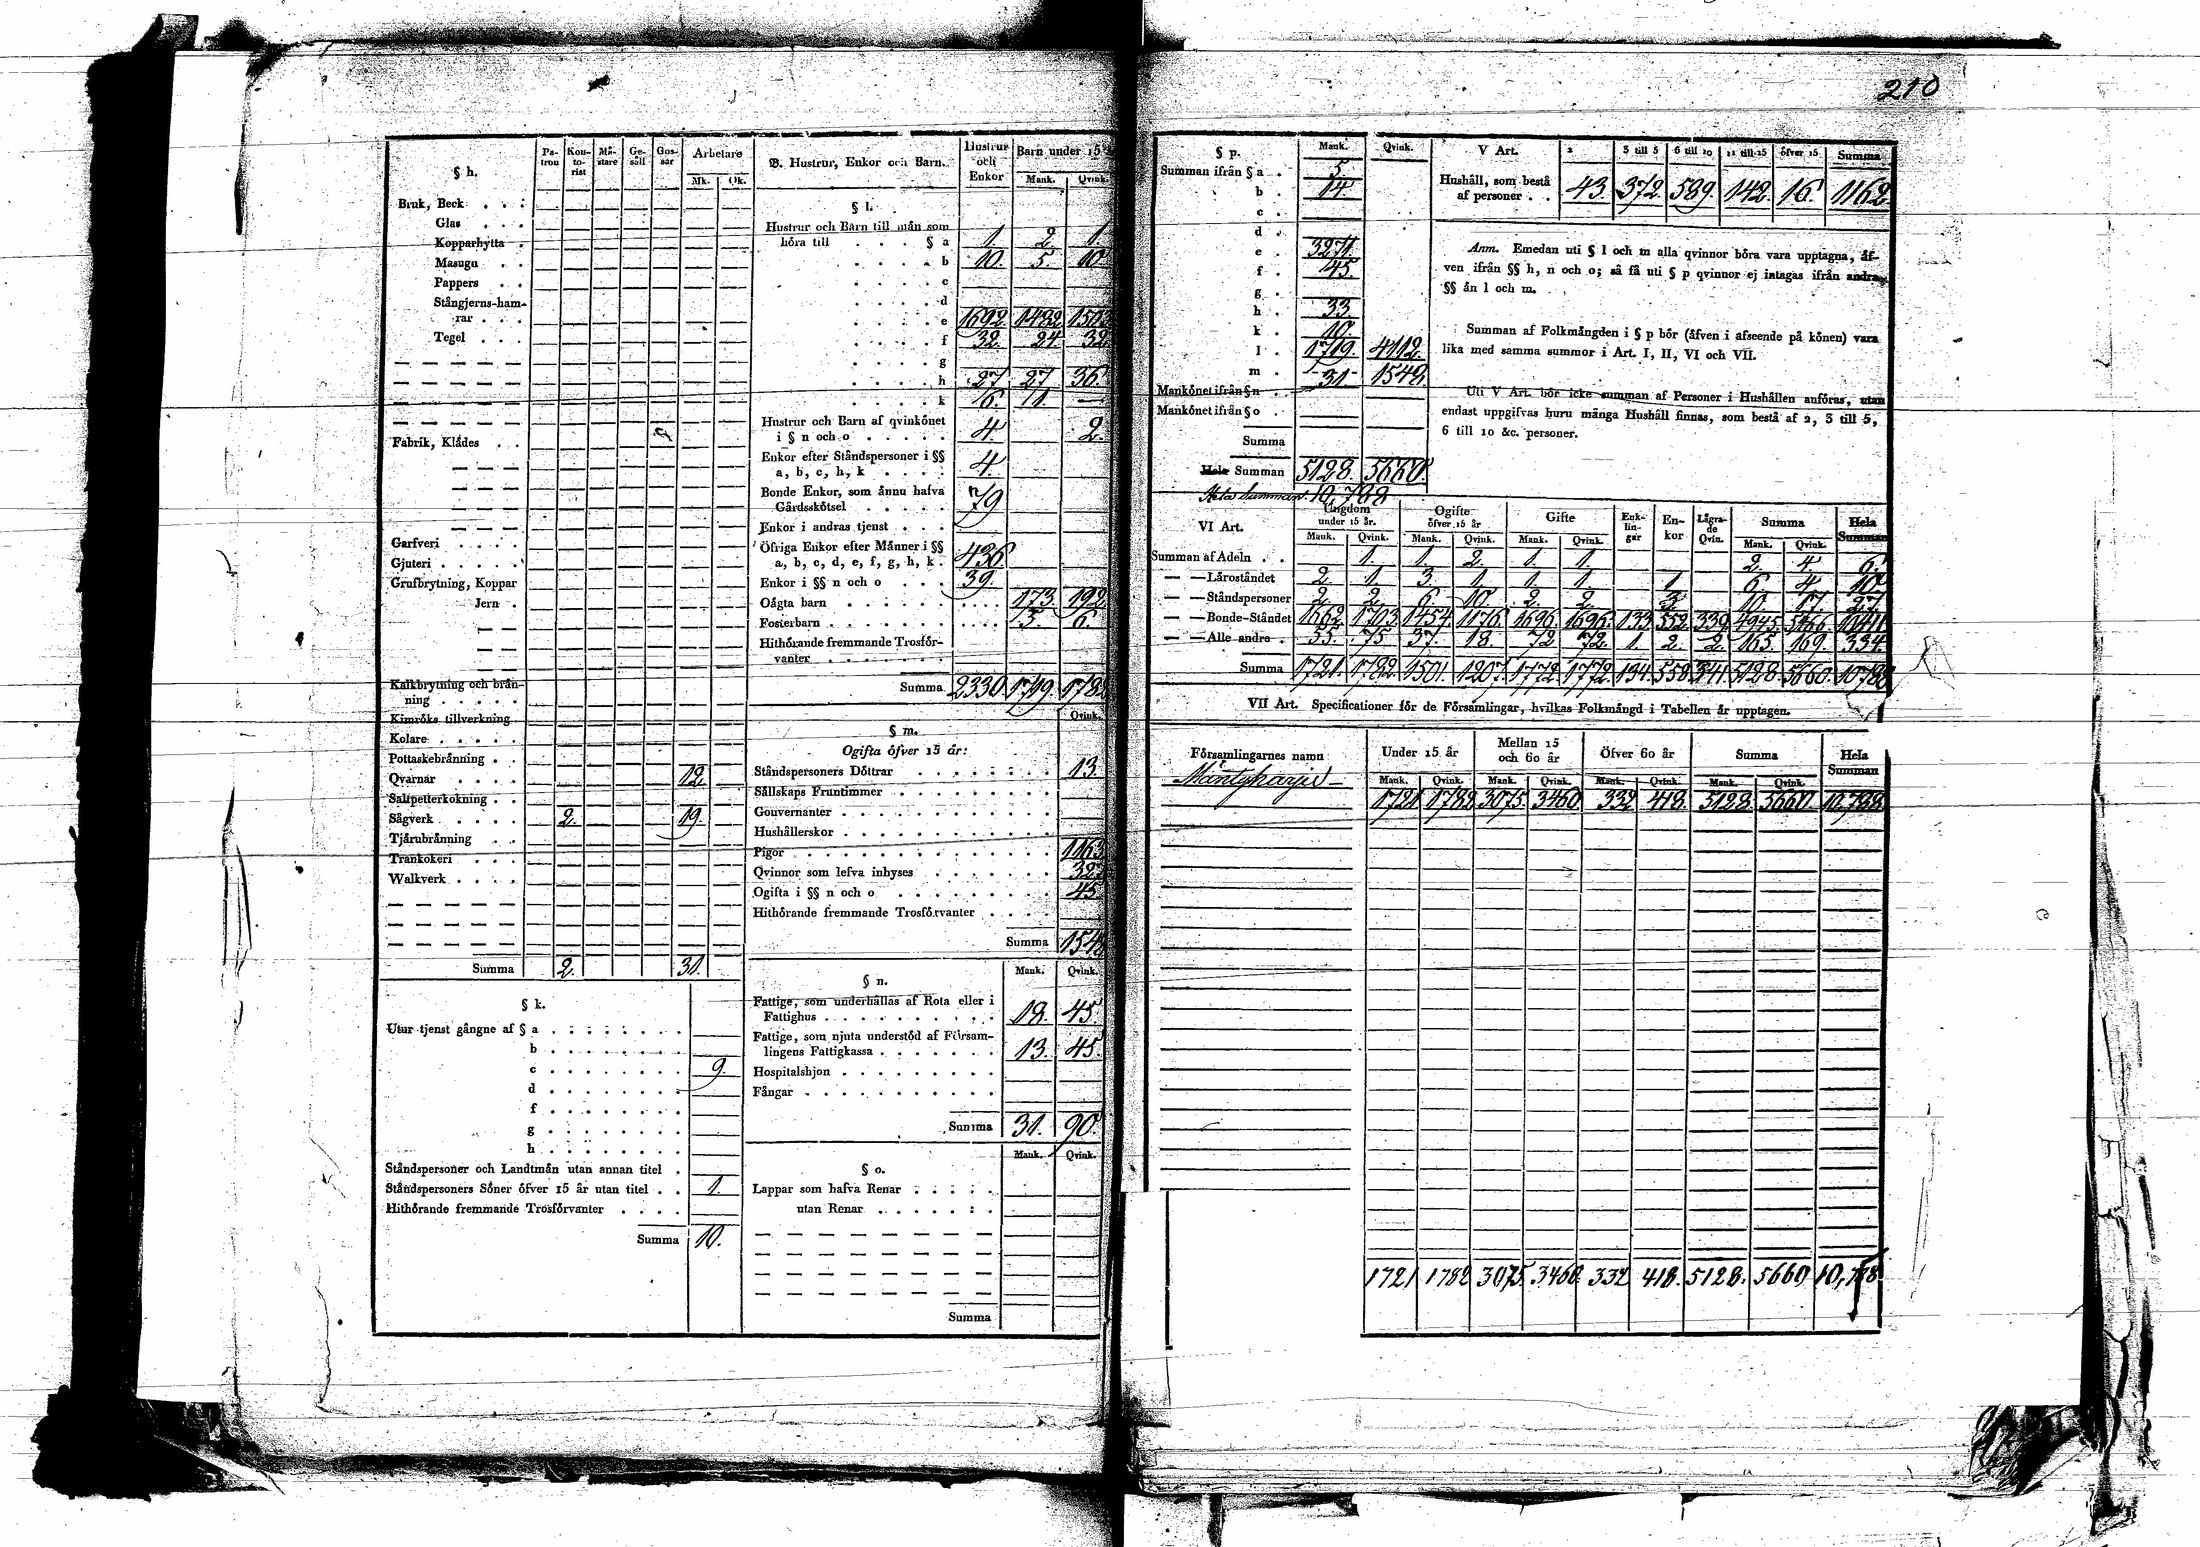 210
§ h.
Pa-tron Kon-to-rist Må-stare Ge-säll Gos-sar Arbetare
Mk. Qk.
Bruk, Beck
Glas
Kopparhytta
Masugn
Pappers
Stångjerns-ham-
rar
Tegel
Fabrik, Klädes
Garfveri
Gjuteri
Grufbrytning, Koppar
Jern
Kalkbrytning och brän-
ning
Kimröks tillverkning
Kolare
Pottaskebränning
Qvarnar 12.
Saltpetterkokning
Sågverk 2. 19.
Tjärubränning
Trankokeri
Walkverk
Summa 2. 31.
§ k.
Utur tjenst gångne af § a
b
c 9.
d
f
g
h
Ståndspersoner och Landtmän utan annan titel
Ståndspersoners Söner öfver 15 år utan titel 1.
Hithörande fremmande Trosförvanter
Summa 10.
B. Hustrur, Enkor och Barn. Hustrur och Enkor Barn under 15
Mank. Qvink.
§ l.
Hustrur och Barn till män som
höra till § a 1. 2. 1.
b 10. 5. 10
c
d
e 1692. 1482 1503
f 32. 24. 32
g
h 27 27 36.
k 6. 11. —
Hustrur och Barn af qvinkönet
i § n och o 4. 2.
Enkor efter Ståndspersoner i §§
a, b, c, h, k 4.
Bonde Enkor, som ännu hafva
Gårdsskötsel 79
Enkor i andras tjenst
Öfriga Enkor efter Männer i §§
a, b, c, d, e, f, g, h, k 436.
Enkor i §§ n och o 39.
Oägta barn 173. 192
Fosterbarn 6.
Hithörande fremmande Trosför-
vanter
Summa 2330 1719. 1782
§ m. Qvink.
Ogifta öfver 15 år:
Ståndspersoners Döttrar 13.
Sällskaps Fruntimmer
Gouvernanter
Hushållerskor
Pigor 1163
Qvinnor som lefva inhyses 327
Ogifta i §§ n och o 45.
Hithörande fremmande Trosförvanter
Summa 1548
§ n. Mank. Qvink.
Fattige, som underhållas af Rota eller i
Fattighus 18. 45.
Fattige, som njuta understöd af Försam-
lingens Fattigkassa 13. 45.
Hospitalshjon
Fångar
Summa 31. 90.
Mank. Qvink.
§ o.
Lappar som hafva Renar
utan Renar
Summa
§ p. Mank. Qvink.
Summan ifrån § a 5.
b 14.
c
d
e 3271.
f 45.
g
h 33.
k 10.
l 1719. 4112.
m 1548.
Mankönet ifrån § n 31
Mankönet ifrån § o
Summa
Hela Summan 5128. 5660.
Hela Summan. 10,788
V Art. 2 3 till 5 6 till 10 11 till 15 öfver 15 Summa
Hushåll, som bestå
af personer 43. 372. 589. 142. 16. 1162.
Anm. Emedan uti § l och m alla qvinnor böra vara upptagna, äf-
ven ifrån §§ h, n och o; så få uti § p qvinnor ej intagas ifrån andra
§§ än l och m.
Summan af Folkmängden i § p bör (äfven i afseende på könen) vara
lika med samma summor i Art. I, II, VI och VII.
Uti V Art. bör icke summan af Personer i Hushållen anföras, utan
endast uppgifvas huru många Hushåll finnas, som bestå af 2, 3 till 5,
6 till 10 &c. personer.
VI Art. Ungdom under 15 år. Ogifte öfver 15 år Gifte Enk-lin-gar En-kor Lägra-de Qvin. Summa Hela Summan
Mank. Qvink. Mank. Qvink. Mank. Qvink. Mank. Qvink.
Summan af Adeln 1. 1. 2. 1. 1. 2. 4. 6.
— — Läroståndet 2. 1. 3. 1. 1. 1 1 6. 4 10
— — Ståndspersoner 2. 2. 6. 10 2. 2. 3. 10. 17. 27.
— — Bonde-Ståndet 1662. 1703. 1454. 1176. 1696. 1696. 133 552 339. 4945. 5466. 10411
— — Alle andre 55. 75. 37. 18. 72 72. 1. 2. 2. 165. 169. 334.
Summa 1721. 1782. 1501. 1207. 1772. 1772. 134. 558 341. 5128. 5660. 10788
VII Art. Specificationer för de Församlingar, hvilkas Folkmängd i Tabellen är upptagen.
Församlingarnes namn Under 15 år Mellan 15 och 60 år Öfver 60 år Summa Hela Summan
Mank. Qvink. Mank. Qvink. Mank. Qvink. Mank. Qvink.
Mäntyharju 1721 1782 3075 3460. 332 418. 5128. 5660. 10,788
1721 1782 3075. 3460. 332 418. 5128. 5660 10,788